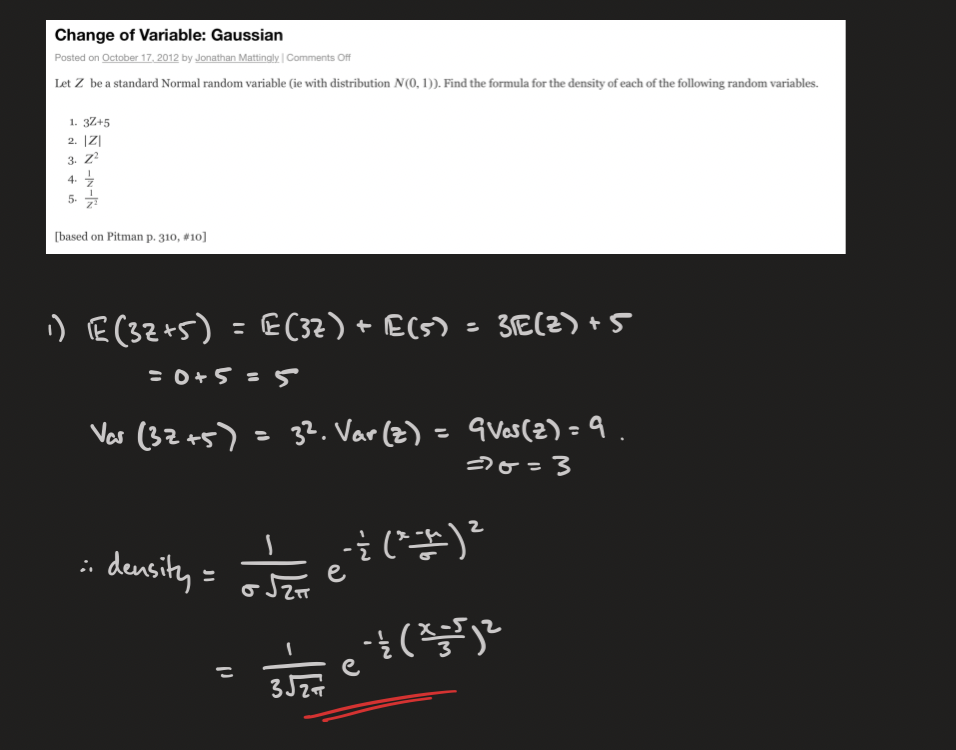 Change of Variable: Gaussian
Posted on October 17, 2012 by Jonathan Mattingly | Comments Off
Let Z be a standard Normal random variable (ie with distribution N(0, 1)). Find the formula for the density of each of the following random variables.
1. 3Z+5
2. |Z|
3. Z²
4. 1/Z
5. 1/Z²
[based on Pitman p. 310, #10]
1) 𝔼(3Z+5) = 𝔼(3Z) + 𝔼(5) = 3𝔼(Z) + 5
= 0 + 5 = 5
Var (3Z+5) = 3². Var(Z) = 9Var(Z) = 9.
⇒ σ = 3
∴ density = 1/(σ√2π) e^(-½ ((x-μ)/σ)²)
= 1/(3√2π) e^(-½ ((x-5)/3)²)